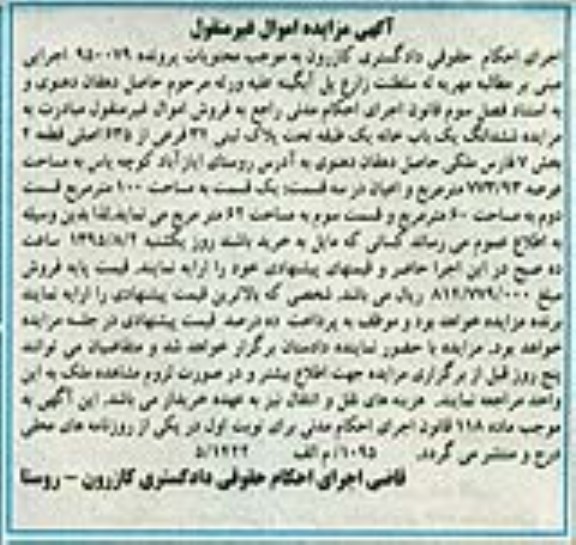 آگهی مزایده اموال غیرمنقول
اجرای احکام حقوقی دادگستری کازرون به موجب محتویات پرونده ۹۵۰۰۷۹ اجرایی
مبنی بر مطالبه مهریه له سلطنت زارع پل آبگینه علیه ورثه مرحوم حاصل دهقان دهنوی و
به استناد فصل سوم قانون اجرای احکام مدنی راجع به فروش اموال غیرمنقول مبادرت به
مزایده ششدانگ یک باب خانه یک طبقه تحت پلاک ثبتی ۳۲ فرعی از ۶۳۵ اصلی قطعه ۲
بخش ۷ فارس ملکی حاصل دهقان دهنوی به آدرس روستای ایازآباد کوچه یاس به مساحت
عرصه ۷۷۳/۹۳ مترمربع و اعیان در سه قسمت: یک قسمت به مساحت ۱۰۰ مترمربع قسمت
دوم به مساحت ۶۰ مترمربع و قسمت سوم به مساحت ۶۲ متر مربع می نماید.لذا بدین وسیله
به اطلاع عموم می رساند کسانی که مایل به خرید باشند روز یکشنبه ۱۳۹۵/۸/۲ ساعت
ده صبح در این اجرا حاضر و قیمتهای پیشنهادی خود را ارایه نمایند. قیمت پایه فروش
مبلغ ۸۱۲/۷۷۹/۰۰۰ ریال می باشد. شخصی که بالاترین قیمت پیشنهادی را ارایه نمایند
برنده مزایده خواهد بود و موظف به پرداخت ده درصد قیمت پیشنهادی در جلسه مزایده
خواهد بود. مزایده با حضور نماینده دادستان برگزار خواهد شد و متقاضیان می توانند
پنج روز قبل از برگزاری مزایده جهت اطلاع بیشتر و در صورت لزوم مشاهده ملک به این
واحد مراجعه نمایند. هزینه های نقل و انتقال نیز به عهده خریدار می باشد. این آگهی به
موجب ماده ۱۱۸ قانون اجرای احکام مدنی برای نوبت اول در یکی از روزنامه های محلی
درج و منتشر می گردد. ۱۰۹۵/م الف ۵/۱۲۲۲
قاضی اجرای احکام حقوقی دادگستری کازرون - روستا